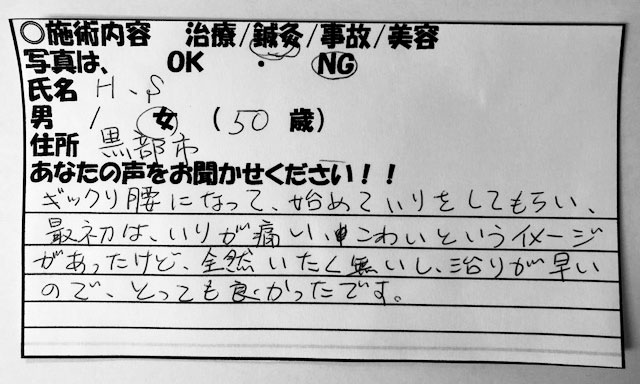 ◎施術内容 治療/鍼灸/事故/美容
写真は、 OK ・ NG
氏名 H、S
男 / 女 (50 歳)
住所 黒部市
あなたの声をお聞かせください!!
ギックリ腰になって、始めてハリをしてもらい、
最初は、ハリが痛い、こわいというイメージ
があったけど、全然いたく無いし、治りが早い
ので、とっても良かったです。